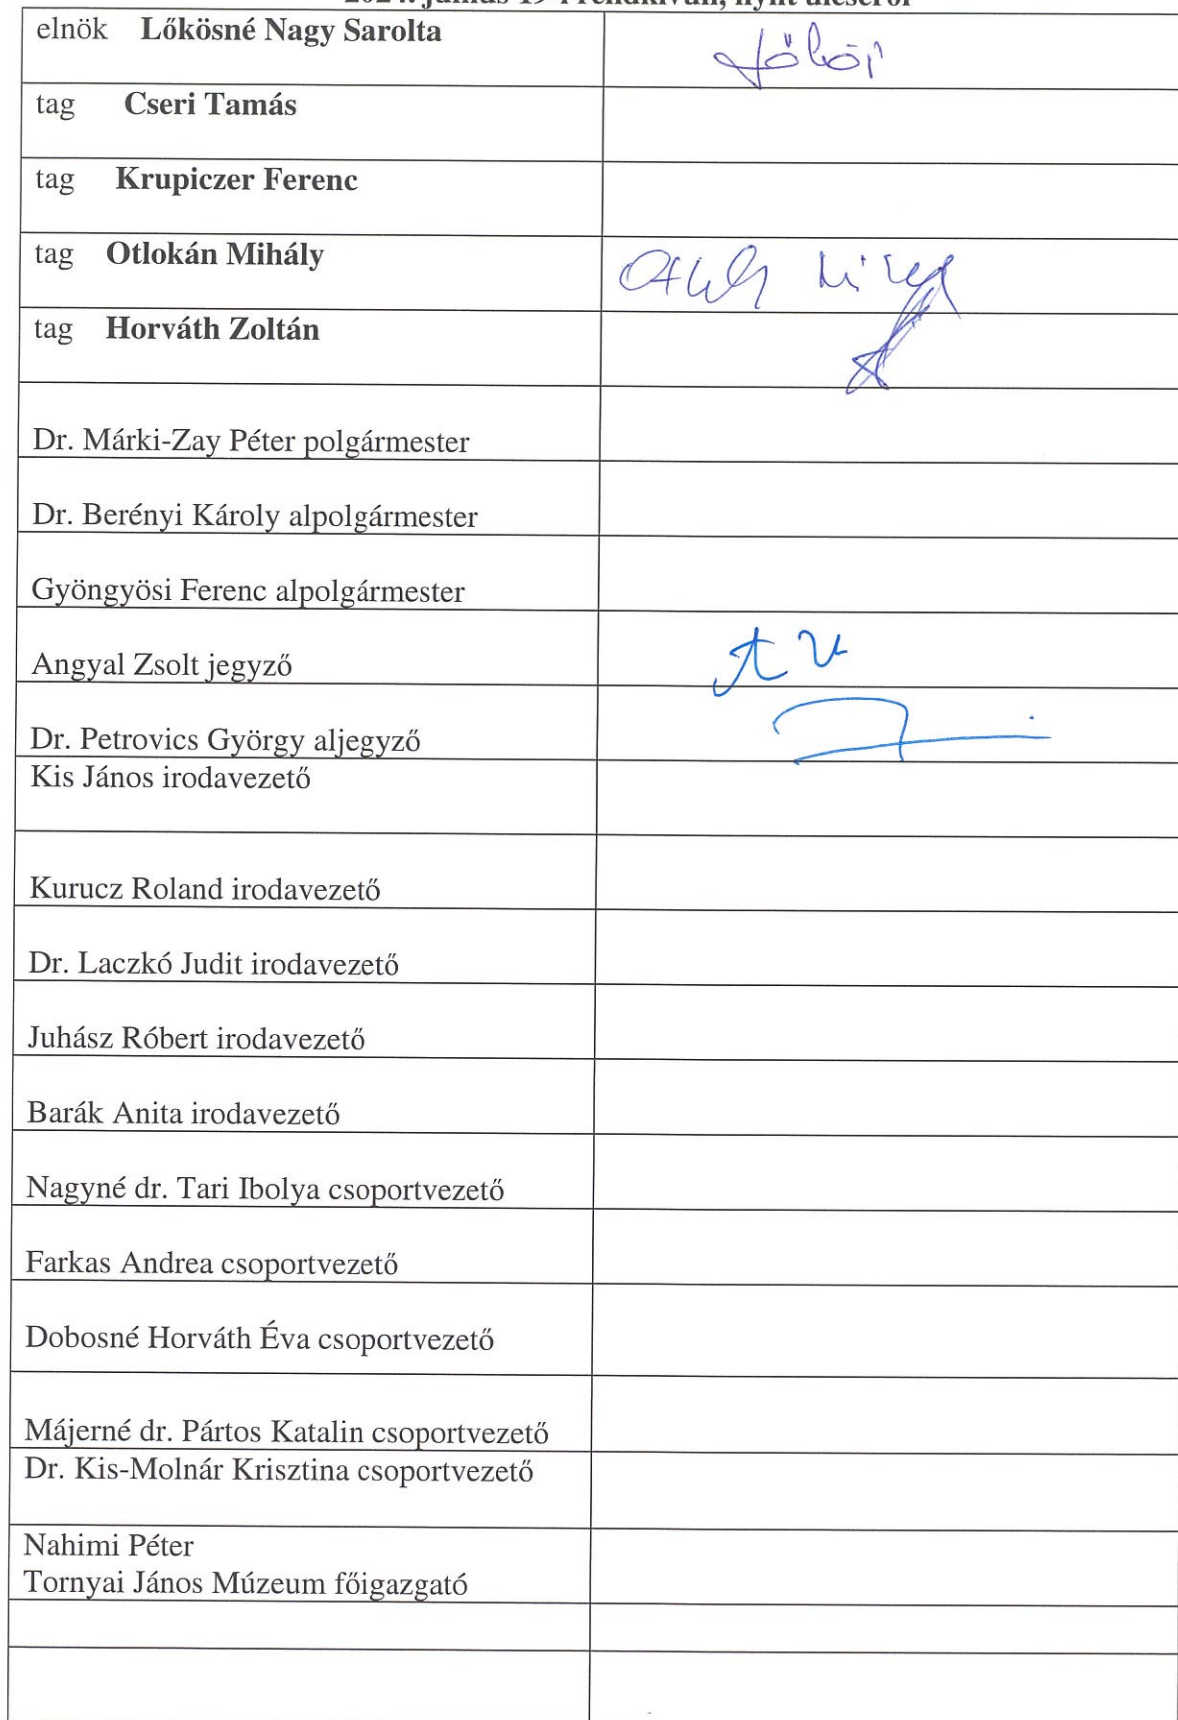 2024. június 19-i rendkívüli, nyílt üléséről
elnök Lőkösné Nagy Sarolta
tag Cseri Tamás
tag Krupiczer Ferenc
tag Otlokán Mihály
tag Horváth Zoltán
Dr. Márki-Zay Péter polgármester
Dr. Berényi Károly alpolgármester
Gyöngyösi Ferenc alpolgármester
Angyal Zsolt jegyző
Dr. Petrovics György aljegyző
Kis János irodavezető
Kurucz Roland irodavezető
Dr. Laczkó Judit irodavezető
Juhász Róbert irodavezető
Barák Anita irodavezető
Nagyné dr. Tari Ibolya csoportvezető
Farkas Andrea csoportvezető
Dobosné Horváth Éva csoportvezető
Májerné dr. Pártos Katalin csoportvezető
Dr. Kis-Molnár Krisztina csoportvezető
Nahimi Péter
Tornyai János Múzeum főigazgató